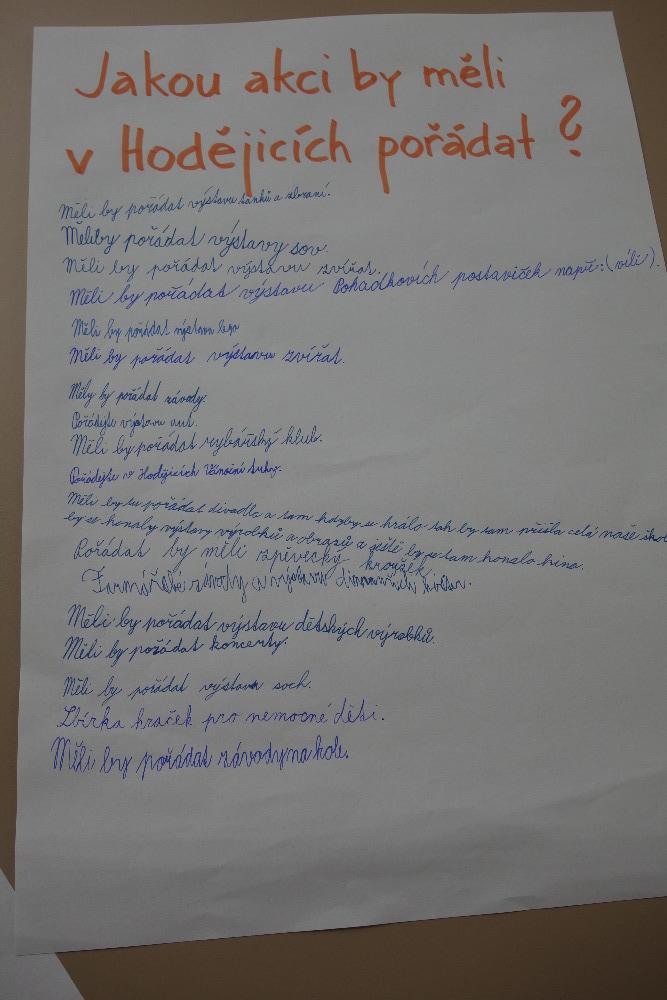 Jakou akci by měli
v Hodějicích pořádat?
Měli by pořádat výstavu tanků a zbraní.
Měliby pořádat výstavy sov.
Měli by pořádat výstavu zvířat.
Měli by pořádat výstavu Pohadkovích postaviček např:(víli).
Měli by pořádat výstavu lego
Měli by pořádat výstavu zvířat.
Měly by pořádat závody.
Pořádejte výstavu aut.
Měli by pořádat rybářský klub.
Pořádejte v Hodějicích Vánoční trhy.
Měli by tu pořádat divadla a tam kdyby se hrálo tak by tam přišla celá naše škol
by se konaly výstavy výrobků a obrazů a ještě by se tam konalo kino.
Pořádat by měli zpěvecký kroužek
Farmářské závody a výstavu
Měli by pořádat výstavu dětských výrobků.
Měli by pořádat koncerty.
Měli by pořádat výstavu soch.
Zbírka hraček pro nemocné děti.
Měli by pořádat závody na kole.